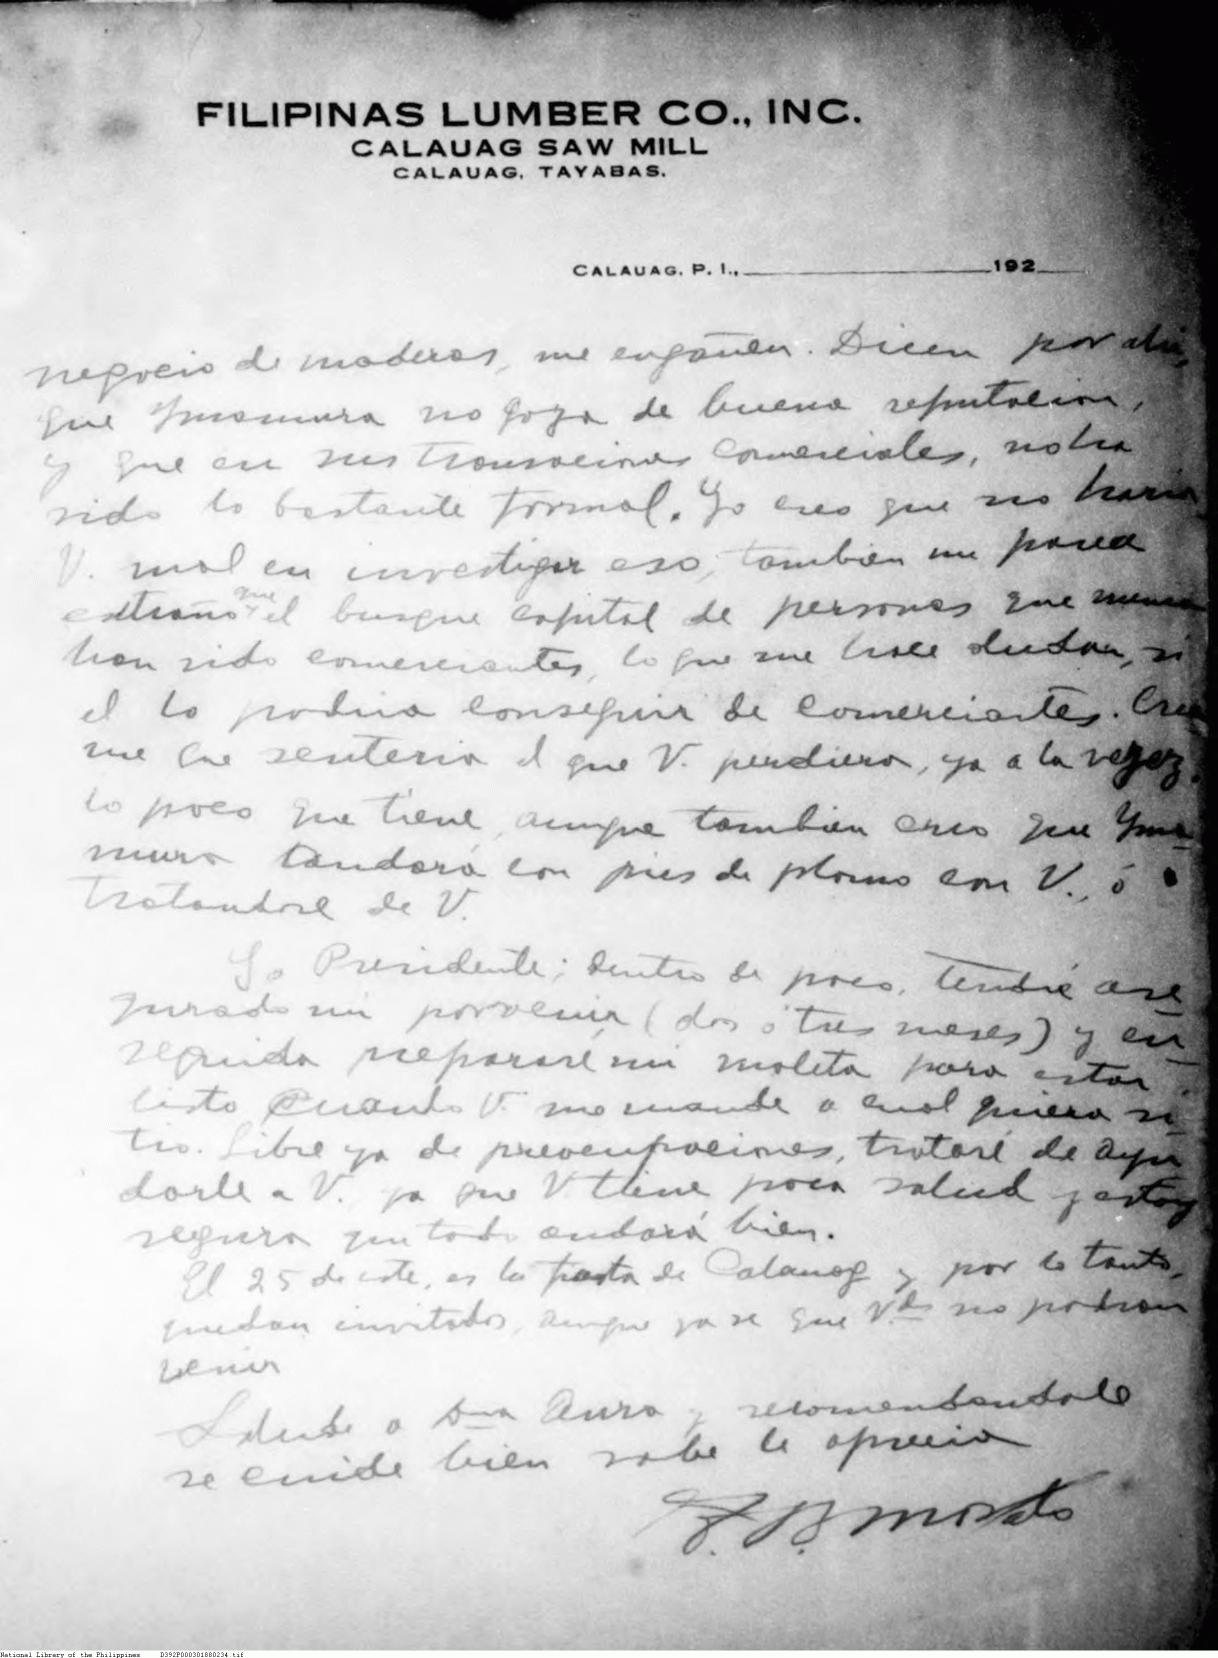 FILIPINAS LUMBER CO., INC.
CALAUAG SAW MILL
CALAUAG, TAYABAS.
CALAUAG, P. I., 192
negocio de maderas, me engañen. Dicen por ahi,
que Ymamura no goza de buena reputacion,
y que en sus transaciones comerciales, no ha
sido lo bastante formal. Yo creo que no haria
V. mal en investigar eso, tambien me parece
extraño que el busque capital de personas que nunca
han sido comerciantes, lo que me hace dudar, si
el lo podria conseguir de comerciantes. Crea
me que sentiria el que V. perdiera, ya a la vejez,
lo poco que tiene, aunque tambien creo que Yma-
mura andará con pies de plomo con V., ó
tratandose de V.
Yo Presidente; dentro de poco, tendré ase-
gurado mi porvenir (dos ó tres meses) y en-
seguida prepararé mi maleta para estar
listo cuando V. me mande a cual quiera si-
tio. Libre ya de preocupaciones, trataré de ayu
darle a V. ya que V. tiene poca salud y estoy
seguro que todo andará bien.
El 25 de este, es la fiesta de Calauag y por lo tanto,
quedan invitados, aunque ya se que Vds no podran
venir
Salude a Dña Aura y recomendandole
se cuide bien sabe le aprecia